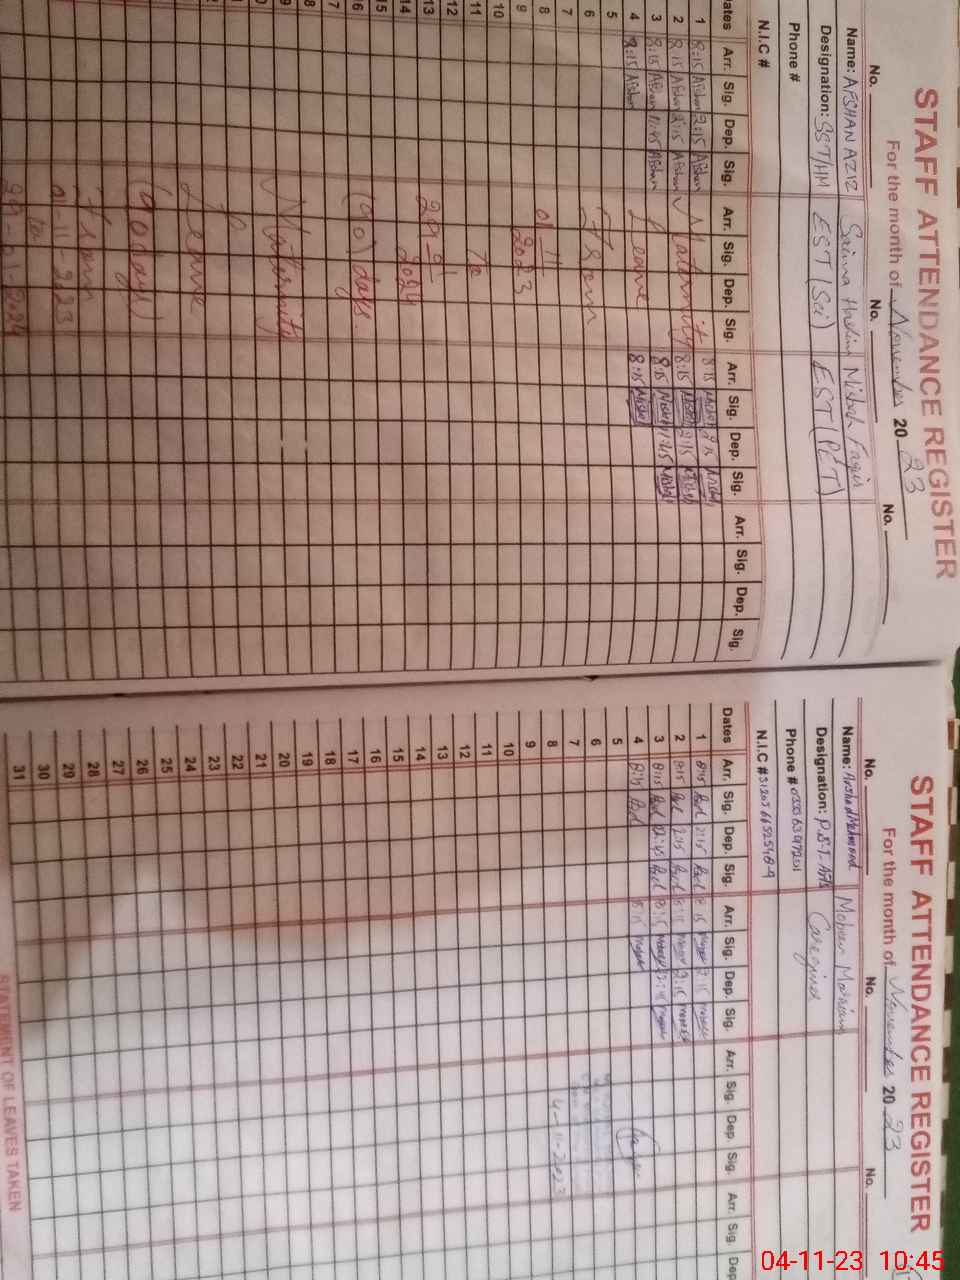 STAFF ATTENDANCE REGISTER
For the month of November 2023
No. No. No.
Name: AFSHAN AZIZ Saima Hashim Misbah Faqir
Designation: SST/HM EST (Sci) EST (PET)
Phone #
N.I.C #
Dates Arr. Sig. Dep. Sig. Arr. Sig. Dep. Sig. Arr. Sig. Dep. Sig. Arr. Sig. Dep. Sig.
1 8:15 Afshan 2:15 Afshan 8:15 Misbah 2:15 Misbah
2 8:15 Afshan 2:15 Afshan Maternity 8:15 Misbah 2:15 Misbah
3 8:15 Afshan 11:45 Afshan 8:15 Misbah 11:45 Misbah
4 8:15 Afshan Leave 8:15 Misbah
5
6 From
7
8 01-11
9 2023
10
11 To
12
13 29-01
14 2024
15
16 (90) days.
17
8
9 Maternity
0
1
2 Leave
(90 days)
From
01-11-2023
to
29-01-2024
STAFF ATTENDANCE REGISTER
For the month of November 2023
No. No. No.
Name: Arshad Mehmood Mobeen
Designation: P.S.T. Caregiver
Phone #
N.I.C #
Dates Arr. Sig. Dep. Sig. Arr. Sig. Dep. Sig. Arr. Sig. Dep. Sig. Arr. Sig. Dep
1 8:15 2:15 8:15 2:15
2 8:15 2:15 8:15 2:15
3 8:15 12:45 8:15 12:45
4 8:15 8:15
5
6
7
8 4-11-2023
9
10
11
12
13
14
15
16
17
18
19
20
21
22
23
24
25
26
27
28
29
30
31
STATEMENT OF LEAVES TAKEN
04-11-23 10:45